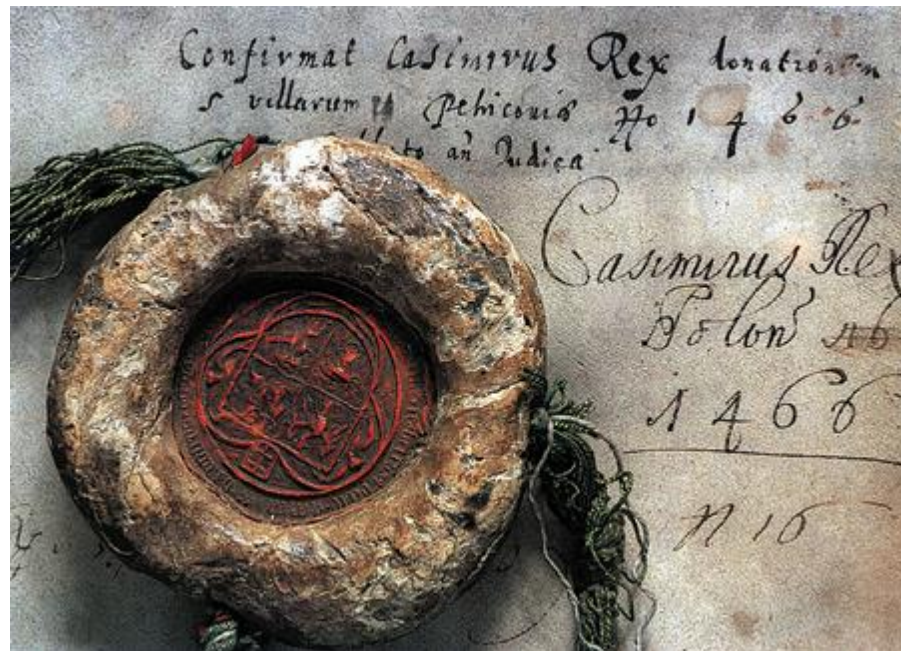 Confirmat Casimirus Rex donationem
s villarum Ao 1466
an Judica
Casimirus Rex
Polon
1466
N 16